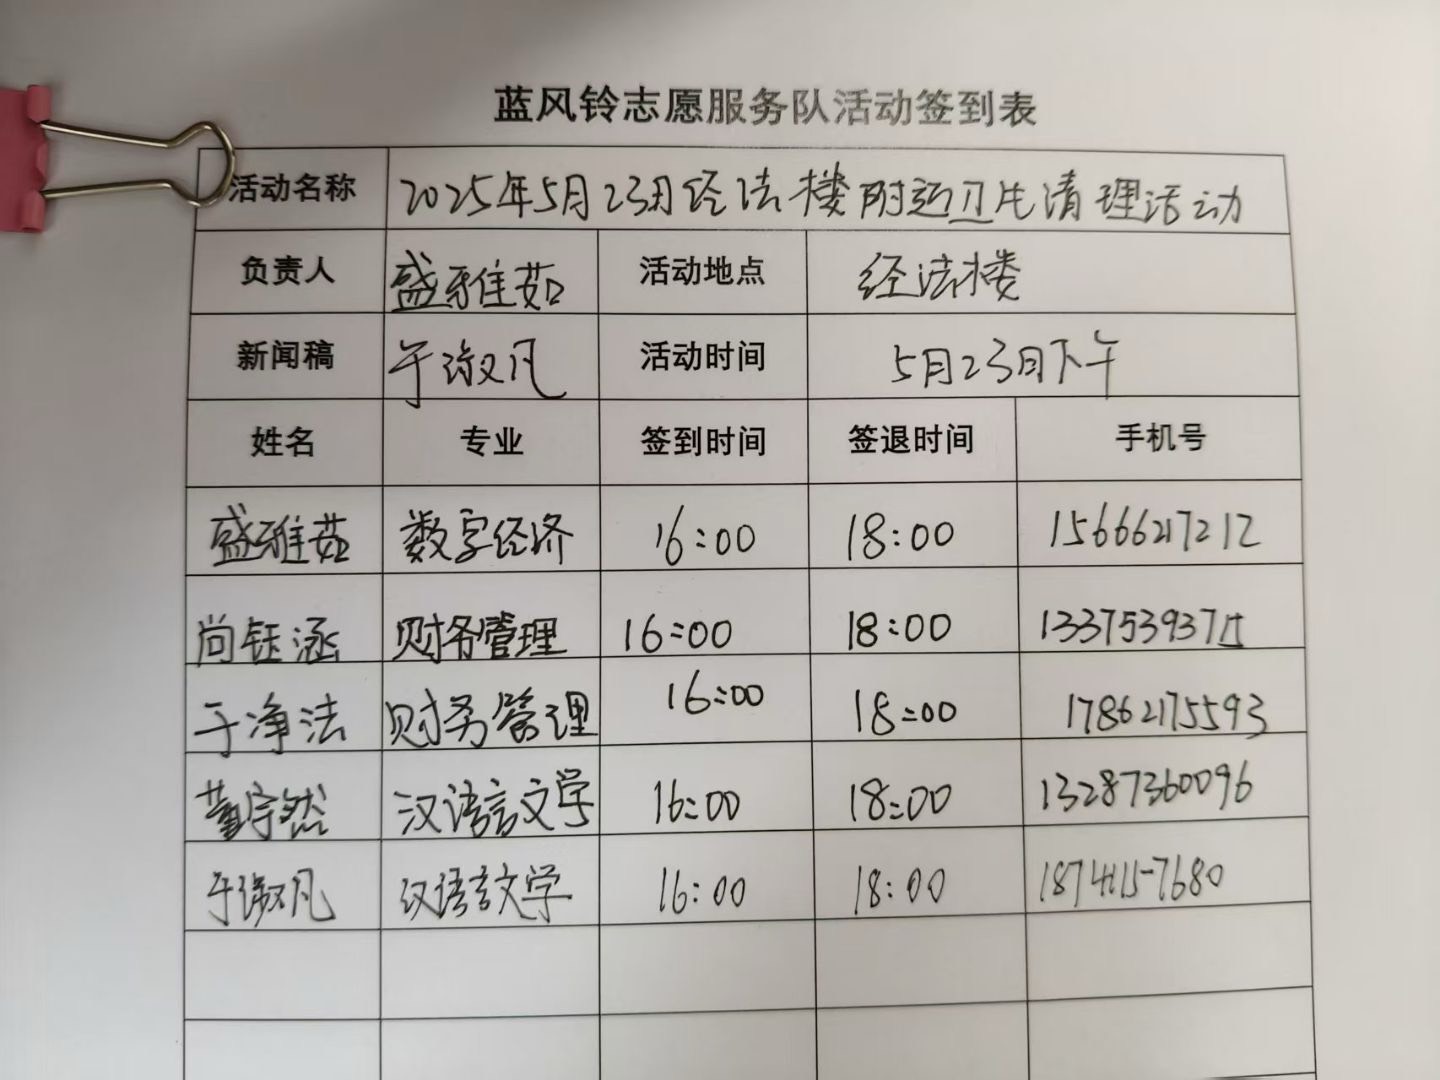 蓝风铃志愿服务队活动签到表
活动名称 2025年5月23日经法楼附近卫生清理活动
负责人 盛雅茹 活动地点 经法楼
新闻稿 于淑凡 活动时间 5月23日下午
姓名 专业 签到时间 签退时间 手机号
盛雅茹 数字经济 16:00 18:00 15666217212
尚钰涵 财务管理 16:00 18:00
于净法 财务管理 16:00 18:00 17862175593
董宇然 汉语言文学 16:00 18:00 13287360096
于淑凡 汉语言文学 16:00 18:00